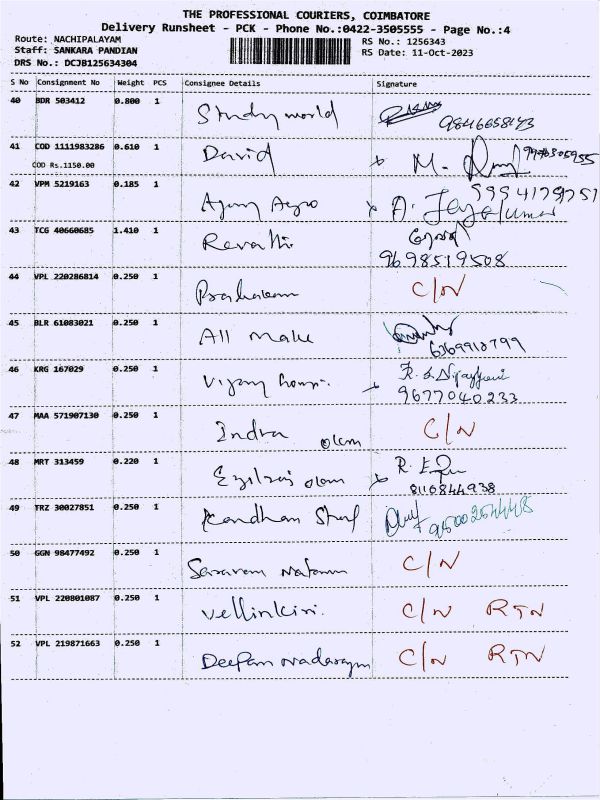 THE PROFESSIONAL COURIERS, COIMBATORE
Delivery Runsheet - PCK - Phone No.:0422-3505555 - Page No.:4
Route: NACHIPALAYAM
Staff: SANKARA PANDIAN
DRS No.: DCJB125634304
RS No.: 1256343
RS Date: 11-Oct-2023
S No Consignment No Weight PCS Consignee Details Signature
40 BDR 503412 0.800 1 Study world
41 COD 1111983286 0.610 1 David M.
COD Rs.1150.00
42 VPM 5219163 0.185 1 Agro A. Jeyakumar
43 TCG 40660685 1.410 1 Revathi
9698519508
44 VPL 220286814 0.250 1 C/N
45 BLR 61083021 0.250 1 All make
6369918799
46 KRG 167029 0.250 1 Vijay
9677040233
47 MAA 571907130 0.250 1 Indra C/N
48 MRT 313459 0.220 1 R.
8110844938
49 TRZ 30027851 0.250 1 Kandhan
50 GGN 98477492 0.250 1 C/N
51 VPL 220801087 0.250 1 Vellinkiri. C/N RTN
52 VPL 219871663 0.250 1 Deepam C/N RTN